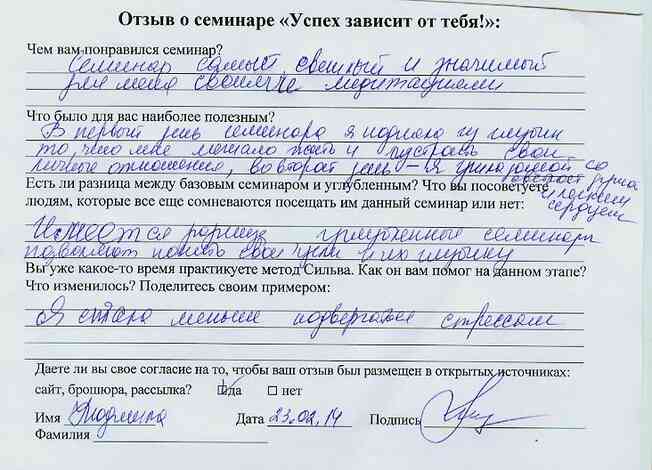 Отзыв о семинаре «Успех зависит от тебя!»:
Чем вам понравился семинар?
Семинар самый и значимый
для меня своими медитациями
Что было для вас наиболее полезным?
В первый день семинара я подняла из глубин
то, что мне мешало жить и строить свои
личные отношения, во второй день – я ушла домой со
светлой душой
и легким
сердцем
Есть ли разница между базовым семинаром и углубленным? Что вы посоветуете
людям, которые все еще сомневаются посещать им данный семинар или нет:
Имеется разница углубленные семинары
позволяют понять свои цели и их глубину
Вы уже какое-то время практикуете метод Сильва. Как он вам помог на данном этапе?
Что изменилось? Поделитесь своим примером:
Я стала меньше подвергаться стрессам
Даете ли вы свое согласие на то, чтобы ваш отзыв был размещен в открытых источниках:
сайт, брошюра, рассылка? да нет
Имя Людмила Дата 23.02.14 Подпись
Фамилия